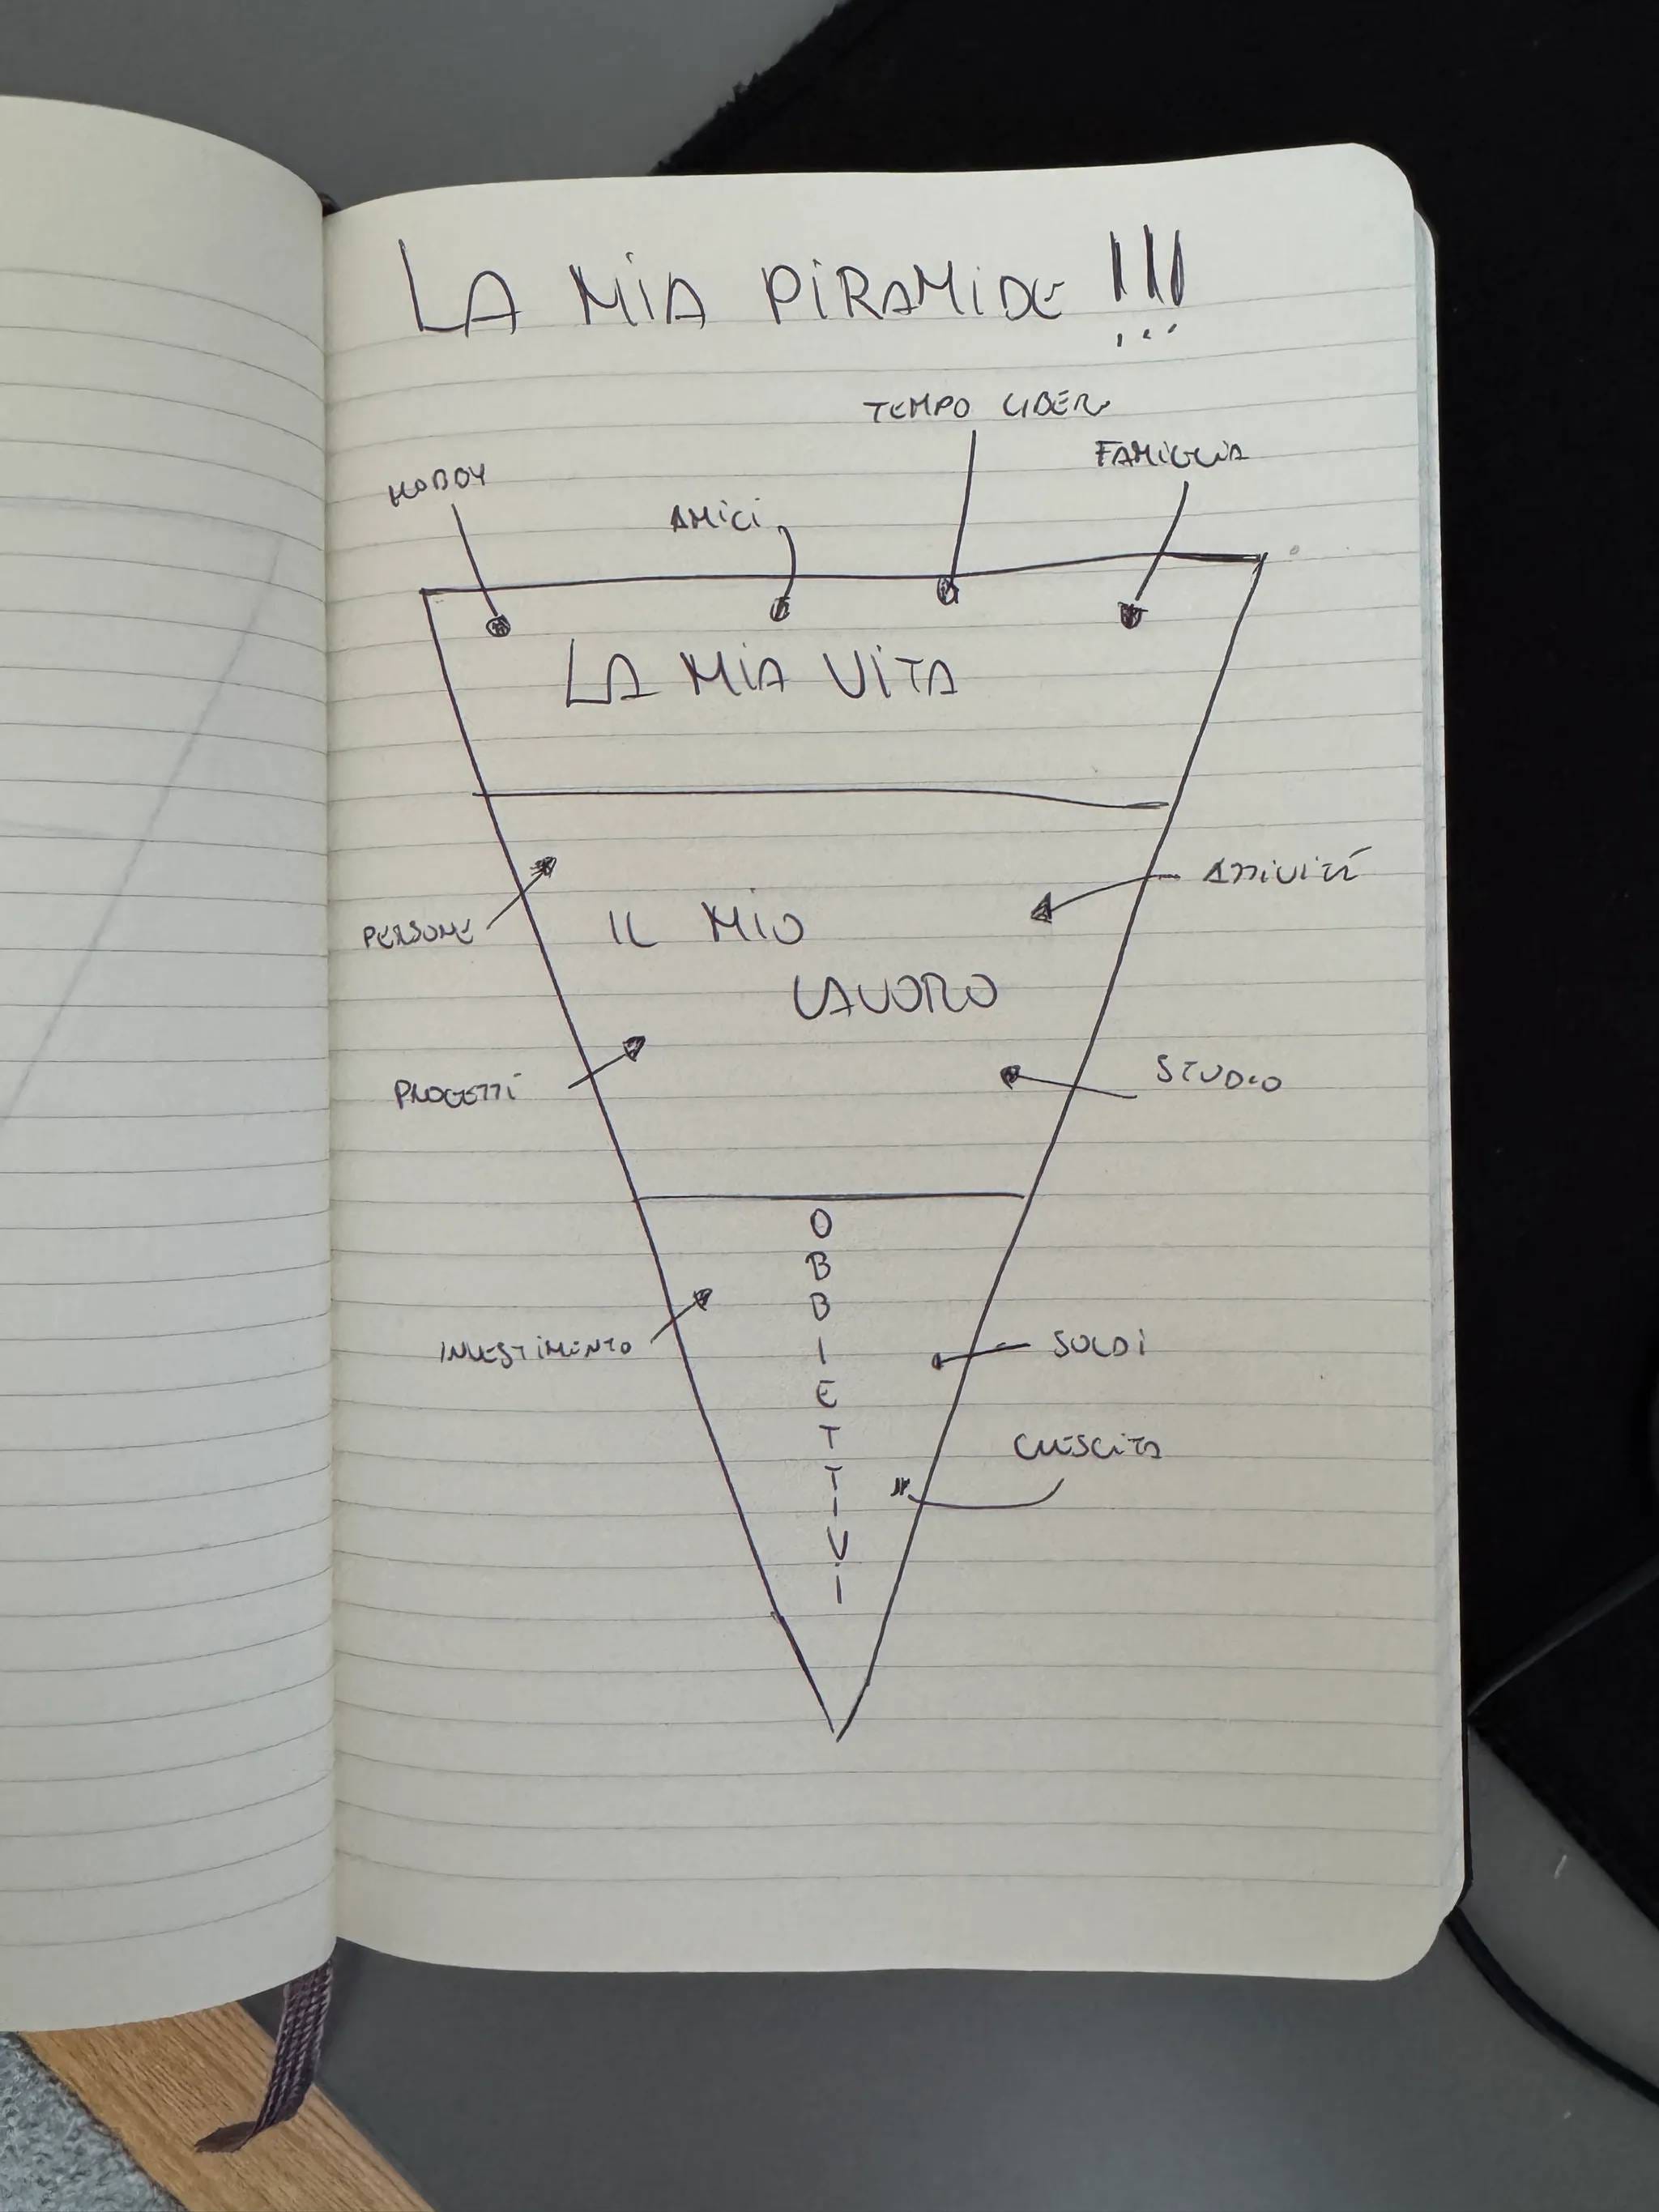 LA MIA PIRAMIDE !!!
TEMPO LIBERO
FAMIGLIA
HOBBY
AMICI
LA MIA VITA
ATTIVITÁ
PERSONE
IL MIO
LAVORO
PROGETTI
STUDIO
O
B
B
I
E
T
T
I
V
I
INVESTIMENTO
SOLDI
CRESCITA